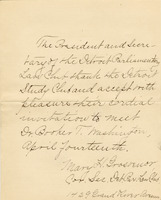 The President and Secre-
tary of the Detroit Parliamentary
Law Club thank the Detroit
Study Club and accept with
pleasure their cordial
invitation to meet
Dr. Booker T. Washington,
April fourteenth.
Mary H. Grosvenor
Cor. Sec. Det. Par. Law Club
429 Grand River Avenue